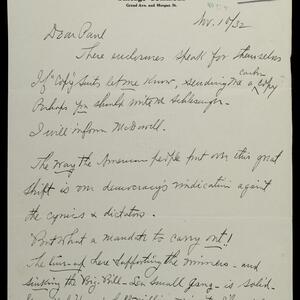 Grand Ave. and Morgan St.
Nov. 10/32
Dear Paul
These enclosures speak for themselves
If "Copy" suits, let me know, sending me a carbon copy
Perhaps you should write to Schlesinger.
I will inform McDowell.
The way the American people put over this great
shift is our democracy's vindication against
the cynics & dictators.
But what a mandate to carry out!
The line-up here supporting the miners - and
Small Gang - is solid -